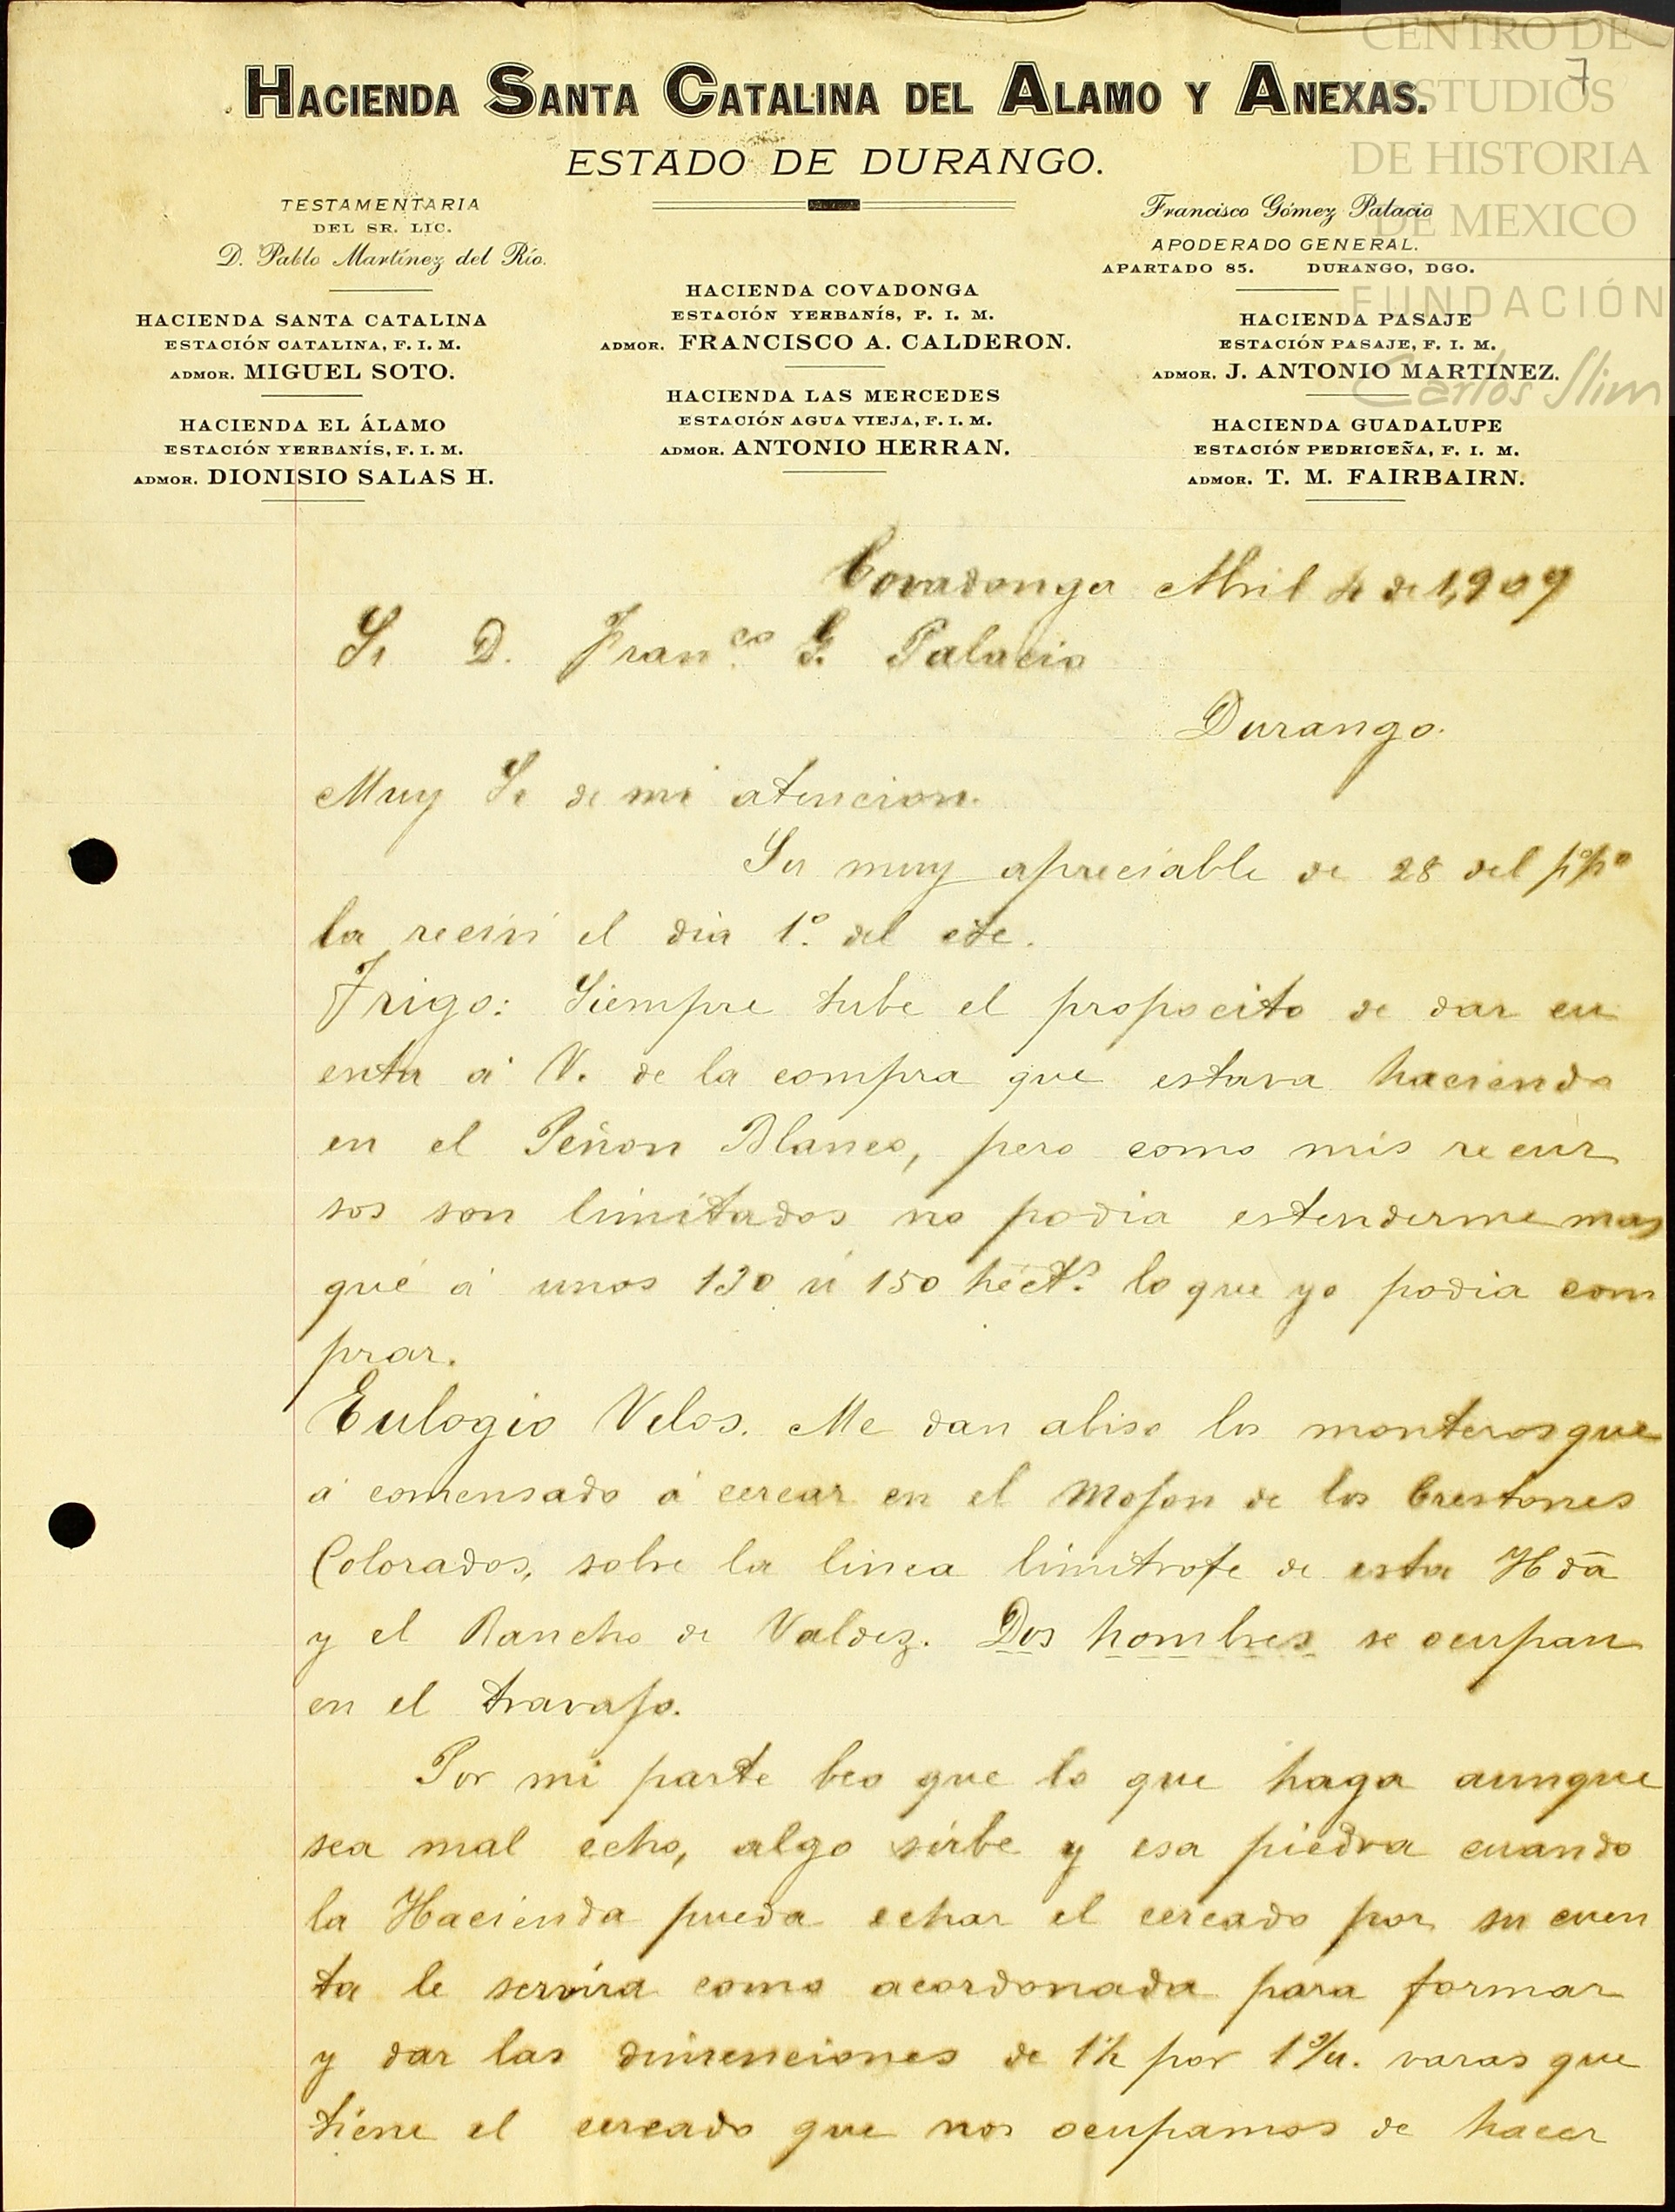 CENTRO DE
ESTUDIOS
DE HISTORIA
DE MEXICO
FUNDACIÓN
Carlos Slim
7
HACIENDA SANTA CATALINA DEL ALAMO Y ANEXAS.
ESTADO DE DURANGO.
TESTAMENTARIA
DEL SR. LIC.
D. Pablo Martínez del Río.
HACIENDA SANTA CATALINA
ESTACIÓN CATALINA, F. I. M.
ADMOR. MIGUEL SOTO.
HACIENDA EL ÁLAMO
ESTACIÓN YERBANÍS, F. I. M.
ADMOR. DIONISIO SALAS H.
HACIENDA COVADONGA
ESTACIÓN YERBANÍS, F. I. M.
ADMOR. FRANCISCO A. CALDERON.
HACIENDA LAS MERCEDES
ESTACIÓN AGUA VIEJA, F. I. M.
ADMOR. ANTONIO HERRAN.
Francisco Gómez Palacio
APODERADO GENERAL.
APARTADO 85. DURANGO, DGO.
HACIENDA PASAJE
ESTACIÓN PASAJE, F. I. M.
ADMOR. J. ANTONIO MARTINEZ.
HACIENDA GUADALUPE
ESTACIÓN PEDRICEÑA, F. I. M.
ADMOR. T. M. FAIRBAIRN.
Covadonga Abril 4 de 1,909
Sr D. Franco. G. Palacio
Durango.
Muy Sr de mi atencion.
Su muy apreciable de 28 del ppo
la reciví el dia 1º. del cte.
Trigo: Siempre tube el propocito de dar cu
enta á V. de la compra que estava haciendo
en el Peñon Blanco, pero como mis recur
sos son limitados no podia estenderme mas
que á unos 130 ú 150 hects. lo que yo podia com
prar.
Eulogio Velos. Me dan abiso los monteros que
á comensado á cercar en el Mojon de los Crestones
Colorados, sobre la linea limitrofe de esta Hda
y el Rancho de Valdez. Dos hombres se ocupan
en el travajo.
Por mi parte beo que lo que haga aunque
sea mal echo, algo sirbe y esa piedra cuando
la Hacienda pueda echar el cercado por su cuen
ta le servira como acordonada para formar
y dar las dimenciones de por varas que
tiene el cercado que nos ocupamos de hacer